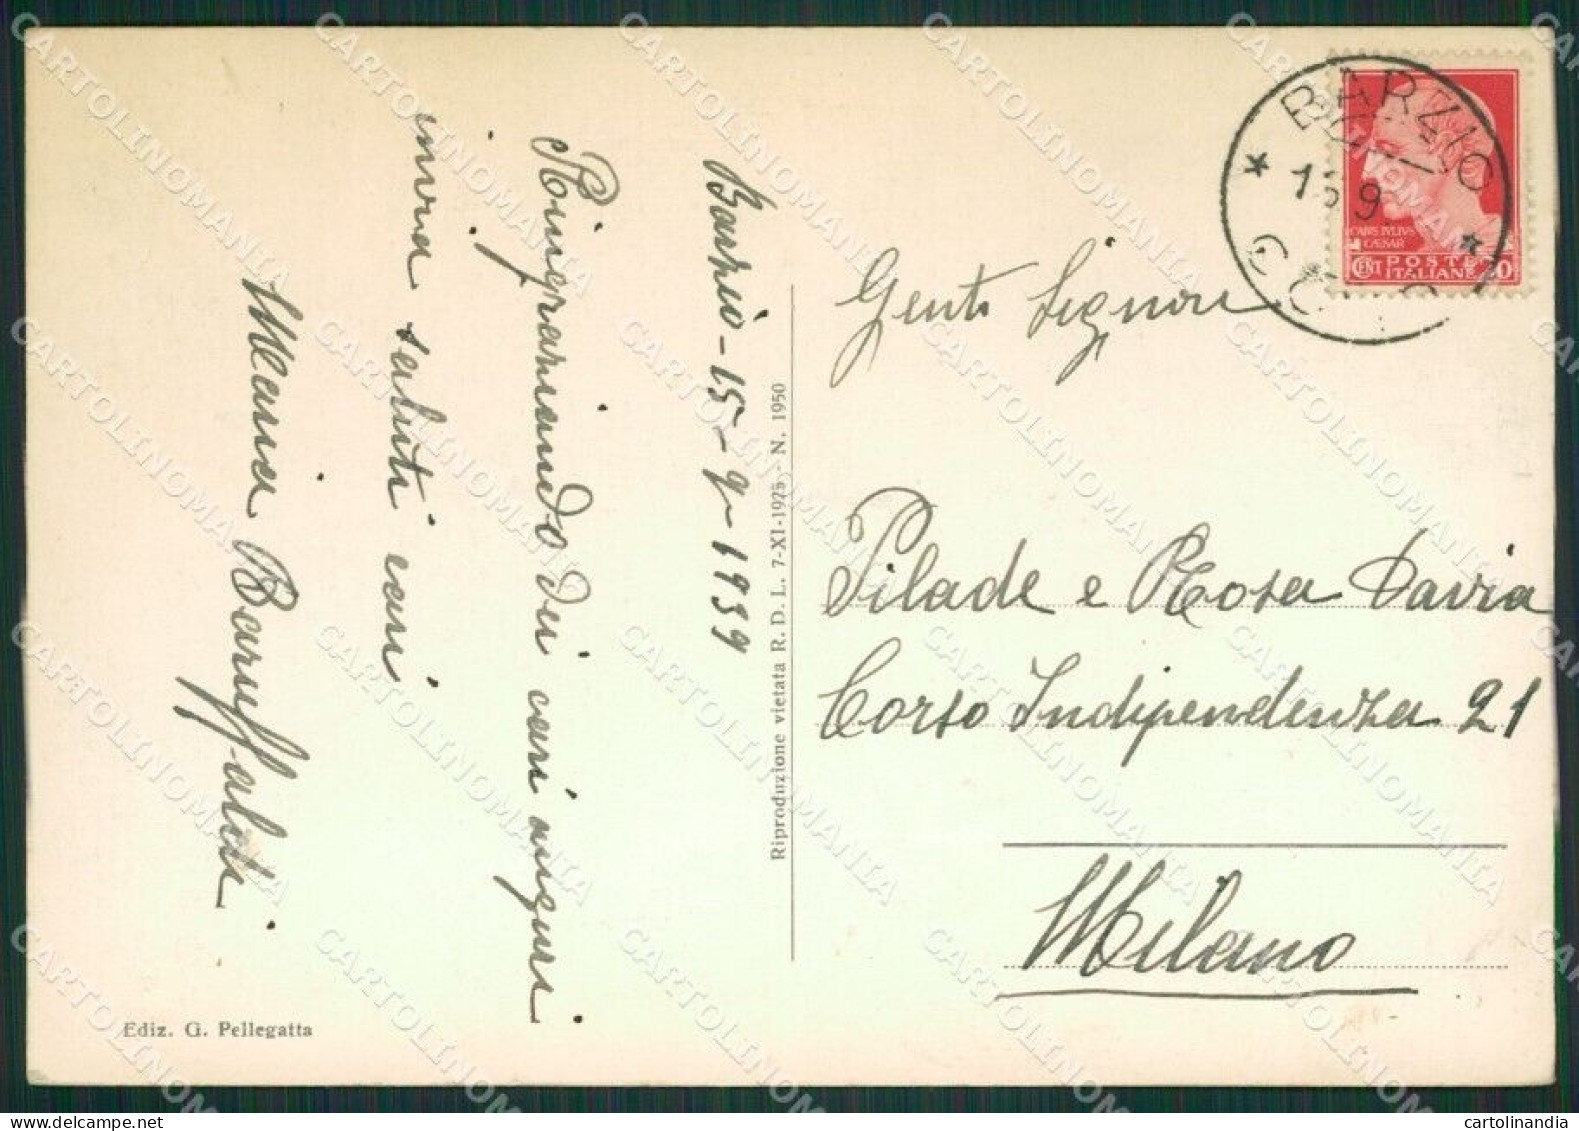 Barzio - 15-9-1939
Ringraziando dei cari auguri
invia saluti cari
Maria Baruffaldi
Ediz. G. Pellegatta
Riproduzione vietata R. D. L. 7-XI-1925 - N. 1950
BARZIO
COMO
CAIVS IVLIVS
CAESAR
CENT POSTE 20
ITALIANE
Gent. Signori
Pilade e Rosa Pavia
Corso Indipendenza 21
Milano
CARTOLINOMANIA
cartolinandia